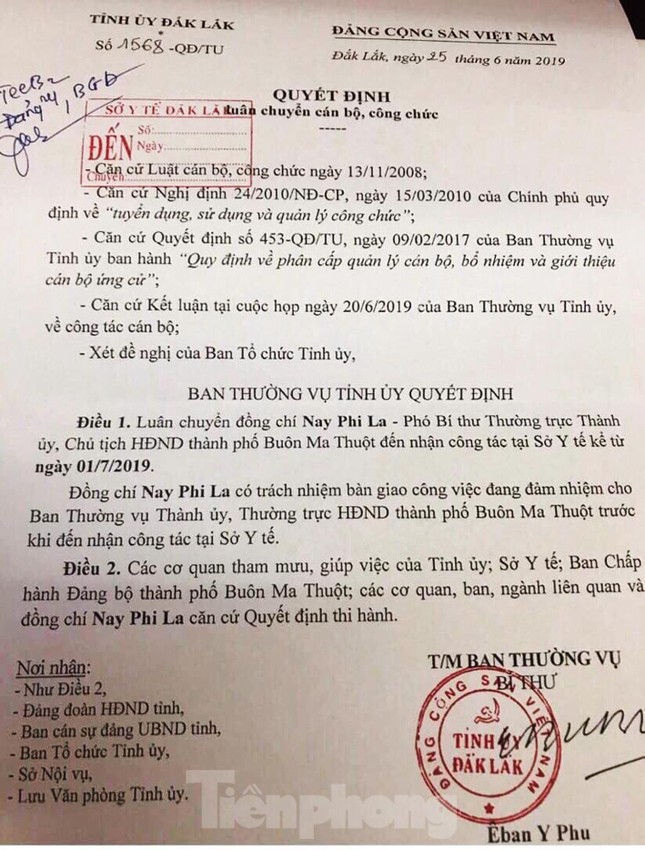 TỈNH ỦY ĐẮK LẮK
ĐẢNG CỘNG SẢN VIỆT NAM
Số 1568 -QĐ/TU
Đắk Lắk, ngày 25 tháng 6 năm 2019
BGĐ
QUYẾT ĐỊNH
Luân chuyển cán bộ, công chức
-----
SỞ Y TẾ ĐẮK LẮK
ĐẾN
Số:
Ngày
Chuyển:
- Căn cứ Luật cán bộ, công chức ngày 13/11/2008;
- Căn cứ Nghị định 24/2010/NĐ-CP, ngày 15/03/2010 của Chính phủ quy
định về “tuyển dụng, sử dụng và quản lý công chức”;
- Căn cứ Quyết định số 453-QĐ/TU, ngày 09/02/2017 của Ban Thường vụ
Tỉnh ủy ban hành “Quy định về phân cấp quản lý cán bộ, bổ nhiệm và giới thiệu
cán bộ ứng cử”;
- Căn cứ Kết luận tại cuộc họp ngày 20/6/2019 của Ban Thường vụ Tỉnh ủy,
về công tác cán bộ;
- Xét đề nghị của Ban Tổ chức Tỉnh ủy,
BAN THƯỜNG VỤ TỈNH ỦY QUYẾT ĐỊNH
Điều 1. Luân chuyển đồng chí Nay Phi La - Phó Bí thư Thường trực Thành
ủy, Chủ tịch HĐND thành phố Buôn Ma Thuột đến nhận công tác tại Sở Y tế kể từ
ngày 01/7/2019.
Đồng chí Nay Phi La có trách nhiệm bàn giao công việc đang đảm nhiệm cho
Ban Thường vụ Thành ủy, Thường trực HĐND thành phố Buôn Ma Thuột trước
khi đến nhận công tác tại Sở Y tế.
Điều 2. Các cơ quan tham mưu, giúp việc của Tỉnh ủy; Sở Y tế; Ban Chấp
hành Đảng bộ thành phố Buôn Ma Thuột; các cơ quan, ban, ngành liên quan và
đồng chí Nay Phi La căn cứ Quyết định thi hành.
Nơi nhận:
- Như Điều 2,
- Đảng đoàn HĐND tỉnh,
- Ban cán sự đảng UBND tỉnh,
- Ban Tổ chức Tỉnh ủy,
- Sở Nội vụ,
- Lưu Văn phòng Tỉnh ủy.
T/M BAN THƯỜNG VỤ
BÍ THƯ
ĐẢNG CỘNG SẢN VIỆT NAM
TỈNH ỦY
ĐẮK LẮK
Êban Y Phu
Tiềnphong